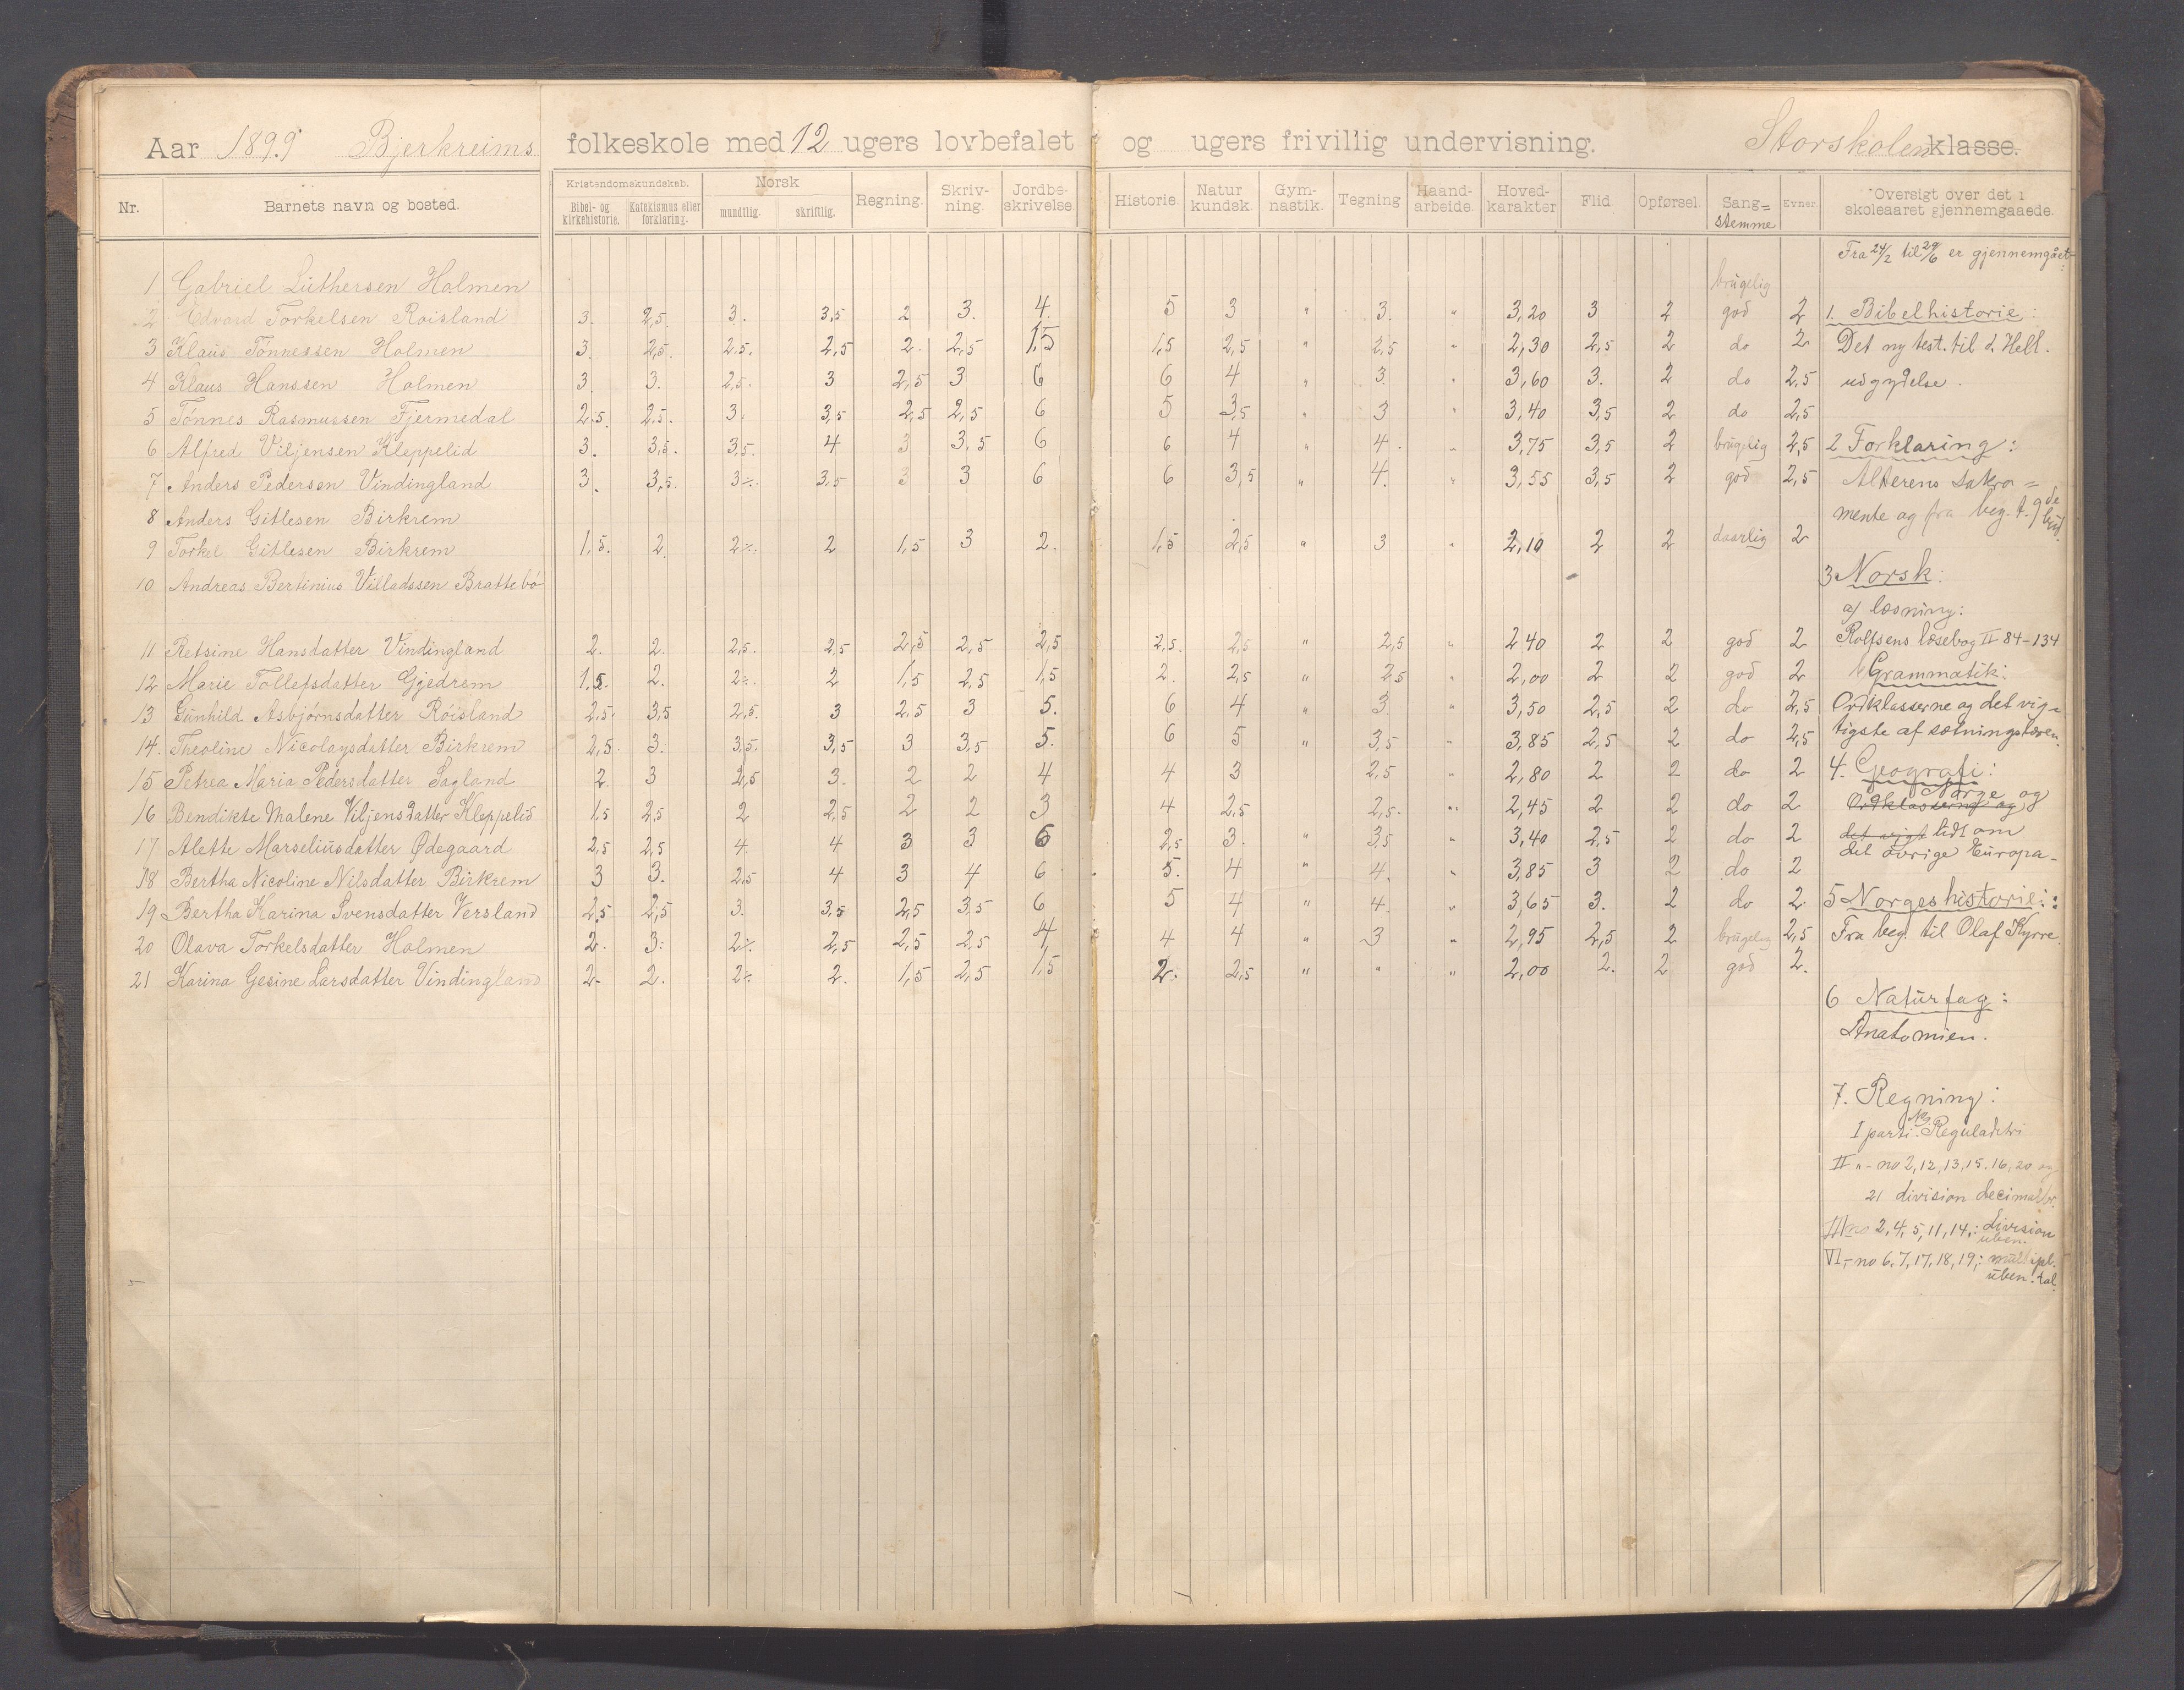 Aar 1899 Bjerkreims folkeskole med 12 ugers lovbefalet og ugers frivillig undervisning. Storskolen klasse.
Nr. Barnets navn og bosted. Kristendomskundskab. Bibel- og kirkehistorie. Katekismus eller forklaring. Norsk mundtlig. skriftlig. Regning. Skriv-ning. Jordbe-skrivelse. Historie. Natur kundsk. Gym-nastik. Tegning Haand-arbeide. Hoved-karakter Flid. Opførsel. Sang=stemme Evner. Oversigt over det i skoleaaret gjennemgaaede.
1 Gabriel Luthersen Holmen brugelig
2 Edvard Torkelsen Roisland 3. 2,5. 3. 3,5 2 3. 4. 5 3 " 3. " 3,20 3 2 god 2
3 Klaus Tønnessen Holmen 3. 2,5. 2,5. 2,5 2. 2,5 1,5 1,5 2,5 " 2,5 " 2,30 2,5 2 do 2
4 Klaus Hanssen Holmen 3. 3. 2,5. 3 2,5 3 6 6 4 " 3. " 3,60 3. 2 do 2,5
5 Tønnes Rasmussen Fjermedal 2,5. 2,5. 3. 3,5 2,5 2,5 6 5 3,5 " 3 " 3,40 3,5 2 do 2,5
6 Alfred Viljensen Kleppelid 3. 3,5. 3,5. 4 3 3,5 6 6 4 " 4. " 3,75 3,5 2 brugelig 2,5
7 Anders Pedersen Vindingland 3. 3,5. 3%. 3,5 3 3 6 6 3,5 " 4. " 3,55 3,5 2 god 2,5
8 Anders Gitlesen Birkrem
9 Torkel Gitlesen Birkrem 1,5. 2. 2%. 2 1,5 3 2. 1,5 2,5 " 3 " 2,10 2 2 daarlig 2
10 Andreas Bertinius Villadssen Brattebø
11 Retsine Hansdatter Vindingland 2. 2. 2,5. 2,5 2,5 2,5 2,5 2,5. 2,5 " 2,5 " 2,40 2 2 god 2
12 Marie Tollefsdatter Gjedrem 1,5. 2. 2%. 2 1,5 2,5 1,5 2. 2,5 " 2,5 " 2,00 2 2 god 2
13 Gunhild Asbjørnsdatter Røisland 2,5. 3,5 2,5. 3 2,5 3 5. 6 4 " 3. " 3,50 2,5 2 do 2,5
14. Theoline Nicolaysdatter Birkrem 2,5. 3. 3,5. 3,5 3 3,5 5. 6 5 " 3,5 " 3,85 2,5 2 do 2,5
15 Petrea Maria Pedersdatter Sagland 2. 3 2,5 3. 2 2 4 4 3 " 2,5 " 2,80 2 2 do 2
16 Bendikte Malene Viljensdatter Kleppelid 1,5 2,5 2 2,5 2 2 3 4 2,5 " 2,5. " 2,45 2 2 do 2
17 Alette Marseliusdatter Ødegaard 2,5 2,5 4. 4 3 3 6 2,5 3. " 3,5 " 3,40 2,5 2 do 2
18 Bertha Nicoline Nilsdatter Birkrem 3 3. 2,5 4 3 4 6 5. 4 " 4. " 3,85 3 2 do 2
19 Bertha Karina Svensdatter Versland 2,5 2,5 3. 3,5 2,5 3,5 6 5 4 " 4. " 3,65 3. 2 do 2
20 Olava Torkelsdatter Holmen 2. 3. 2%. 2,5 2,5 2,5 4 4 4 " 3 " 2,95 2,5 2 brugelig 2,5
21 Karina Gesine Larsdatter Vindingland 2. 2. 2%. 2. 1,5 2,5 1,5 2. 2,5 " " " 2,00 2. 2 god 2.
Fra 24/2 til 29/6 er gjennemgået:
1. Bibelhistorie:
Det ny test. til d. Hell.
udgydelse.
2 Forklaring:
Alterens sakra=
mente og fra beg. t. 9de bud.
3 Norsk:
a) læsning:
Rolfsens læsebog II 84-134
b Grammatik:
Ordklasserne og det vig=
tigste af sætningslæren.
4. Geografi:
Norge og
Ordklasserne og
det vigt lidt om
det øvrige Europa-
5 Norgeshistorie:
Fra beg. til Olaf Kyrre.
6 Naturfag:
Anatomien.
7. Regning:
I parti Reguladetri
II "- no 2, 12, 13, 15, 16, 20 og
21 division decimalbr.
III no 2, 4, 5, 11, 14,: division
uben.
VI,- no 6, 7, 17, 18, 19,: multipl.
uben. tal